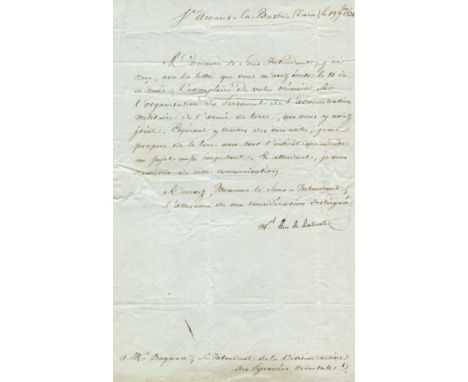 St Amans-la-Bastide, (Tarn) le 19 9bre
Monsieur le Sous-Intendant, j'ai
reçu, avec la lettre que vous m'avez écrite le 10 de
ce mois, l'exemplaire de votre mémoire sur
l'organisation du Personnel de l'administration
militaire de l'armée de terre, que vous y avez
joint. Espérant y trouver des vues utiles, je me
propose de le lire avec tout l'intérêt que mérite
un sujet aussi important. En attendant, je vous
remercie de cette communication.
Recevez, Monsieur le Sous-Intendant,
l'assurance de ma considération distinguée,
Mal Duc de Dalmatie
A Mr. Sous-Intendant de la Division active
des Pyrénées Orientales